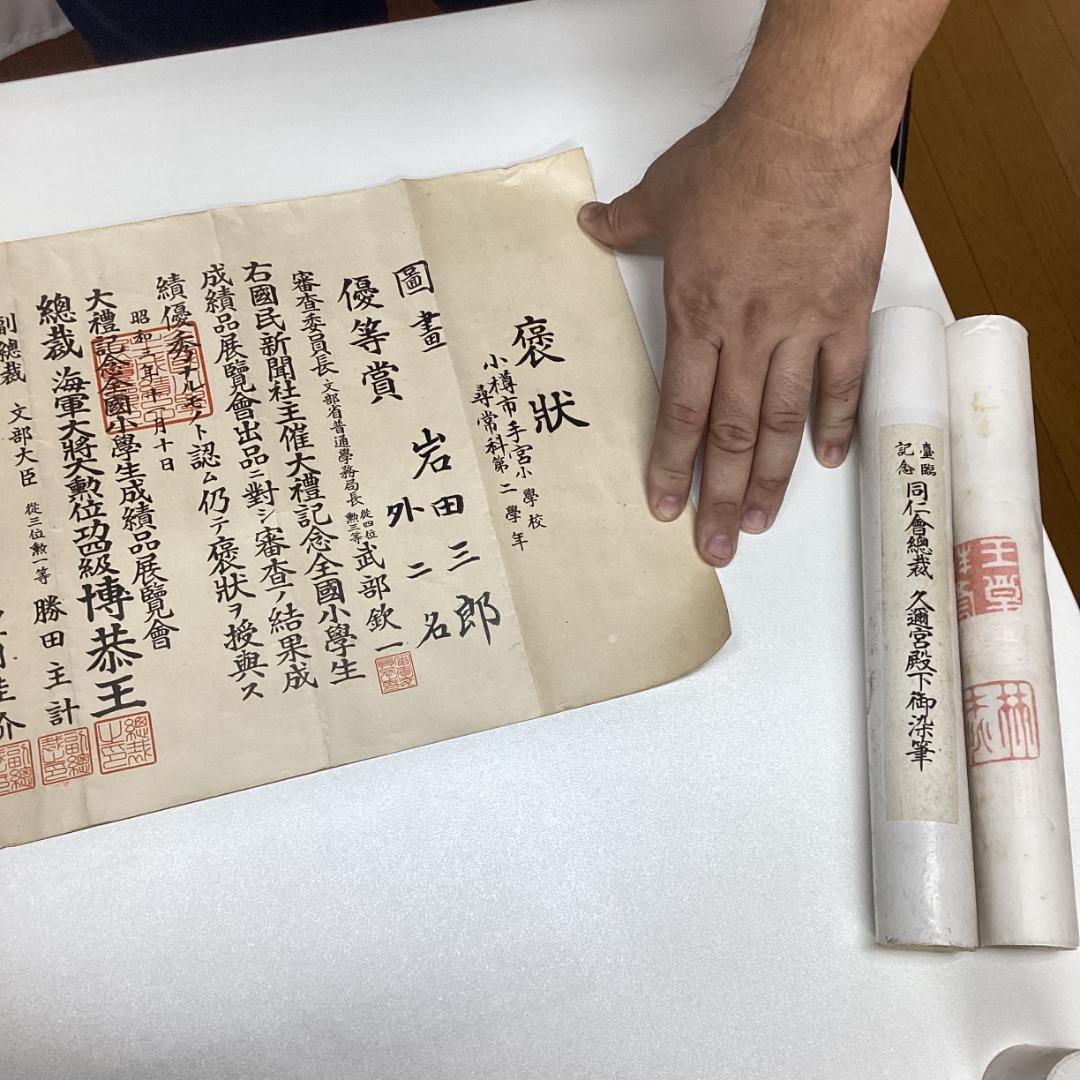 褒狀
小樽市手宮小學校
尋常科第二學年
圖畫 岩田三郎
優等賞 外二名
審查委員長 文部省普通學務局長 從四位勳三等 武部欽一
右國民新聞社主催大禮記念全國小學生
成績品展覽會出品ニ對シ審查ノ結果成
績優秀ナルモノト認ム仍テ褒狀ヲ授與ス
昭和三年十一月十日
大禮記念全國小學生成績品展覽會
總裁 海軍大將大勳位功四級博恭王
總裁之印
副總裁 文部大臣 從三位勳一等 勝田主計
副總裁之印
介
副總
臺臨記念 同仁會總裁 久邇宮殿下御染筆